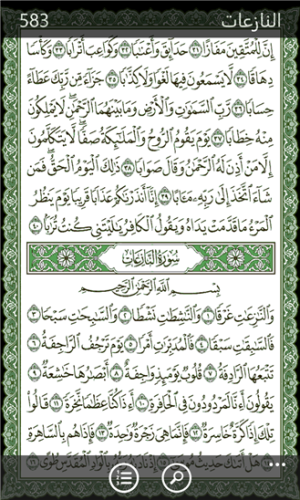 583 النازعات
إِنَّ لِلْمُتَّقِينَ مَفَازًا ٣١ حَدَائِقَ وَأَعْنَابًا ٣٢ وَكَوَاعِبَ أَتْرَابًا ٣٣ وَكَأْسًا
دِهَاقًا ٣٤ لَّا يَسْمَعُونَ فِيهَا لَغْوًا وَلَا كِذَّابًا ٣٥ جَزَاءً مِّن رَّبِّكَ عَطَاءً
حِسَابًا ٣٦ رَّبِّ السَّمَٰوَٰتِ وَالْأَرْضِ وَمَا بَيْنَهُمَا الرَّحْمَٰنِ لَا يَمْلِكُونَ
مِنْهُ خِطَابًا ٣٧ يَوْمَ يَقُومُ الرُّوحُ وَالْمَلَٰئِكَةُ صَفًّا لَّا يَتَكَلَّمُونَ
إِلَّا مَنْ أَذِنَ لَهُ الرَّحْمَٰنُ وَقَالَ صَوَابًا ٣٨ ذَٰلِكَ الْيَوْمُ الْحَقُّ فَمَن
شَاءَ اتَّخَذَ إِلَىٰ رَبِّهِ مَـَٔابًا ٣٩ إِنَّا أَنذَرْنَٰكُمْ عَذَابًا قَرِيبًا يَوْمَ يَنظُرُ
الْمَرْءُ مَا قَدَّمَتْ يَدَاهُ وَيَقُولُ الْكَافِرُ يَٰلَيْتَنِي كُنتُ تُرَٰبًا ٤٠
سُورَةُ النَّازِعَاتِ
بِسْمِ اللَّهِ الرَّحْمَٰنِ الرَّحِيمِ
وَالنَّٰزِعَٰتِ غَرْقًا ١ وَالنَّٰشِطَٰتِ نَشْطًا ٢ وَالسَّٰبِحَٰتِ سَبْحًا ٣
فَالسَّٰبِقَٰتِ سَبْقًا ٤ فَالْمُدَبِّرَٰتِ أَمْرًا ٥ يَوْمَ تَرْجُفُ الرَّاجِفَةُ ٦
تَتْبَعُهَا الرَّادِفَةُ ٧ قُلُوبٌ يَوْمَئِذٍ وَاجِفَةٌ ٨ أَبْصَٰرُهَا خَٰشِعَةٌ ٩
يَقُولُونَ أَءِنَّا لَمَرْدُودُونَ فِي الْحَافِرَةِ ١٠ أَءِذَا كُنَّا عِظَٰمًا نَّخِرَةً ١١ قَالُوا
تِلْكَ إِذًا كَرَّةٌ خَاسِرَةٌ ١٢ فَإِنَّمَا هِيَ زَجْرَةٌ وَٰحِدَةٌ ١٣ فَإِذَا هُم بِالسَّاهِرَةِ
١٤ هَلْ أَتَىٰكَ حَدِيثُ مُوسَىٰ ١٥ إِذْ نَادَىٰهُ رَبُّهُ بِالْوَادِ الْمُقَدَّسِ طُوًى ١٦